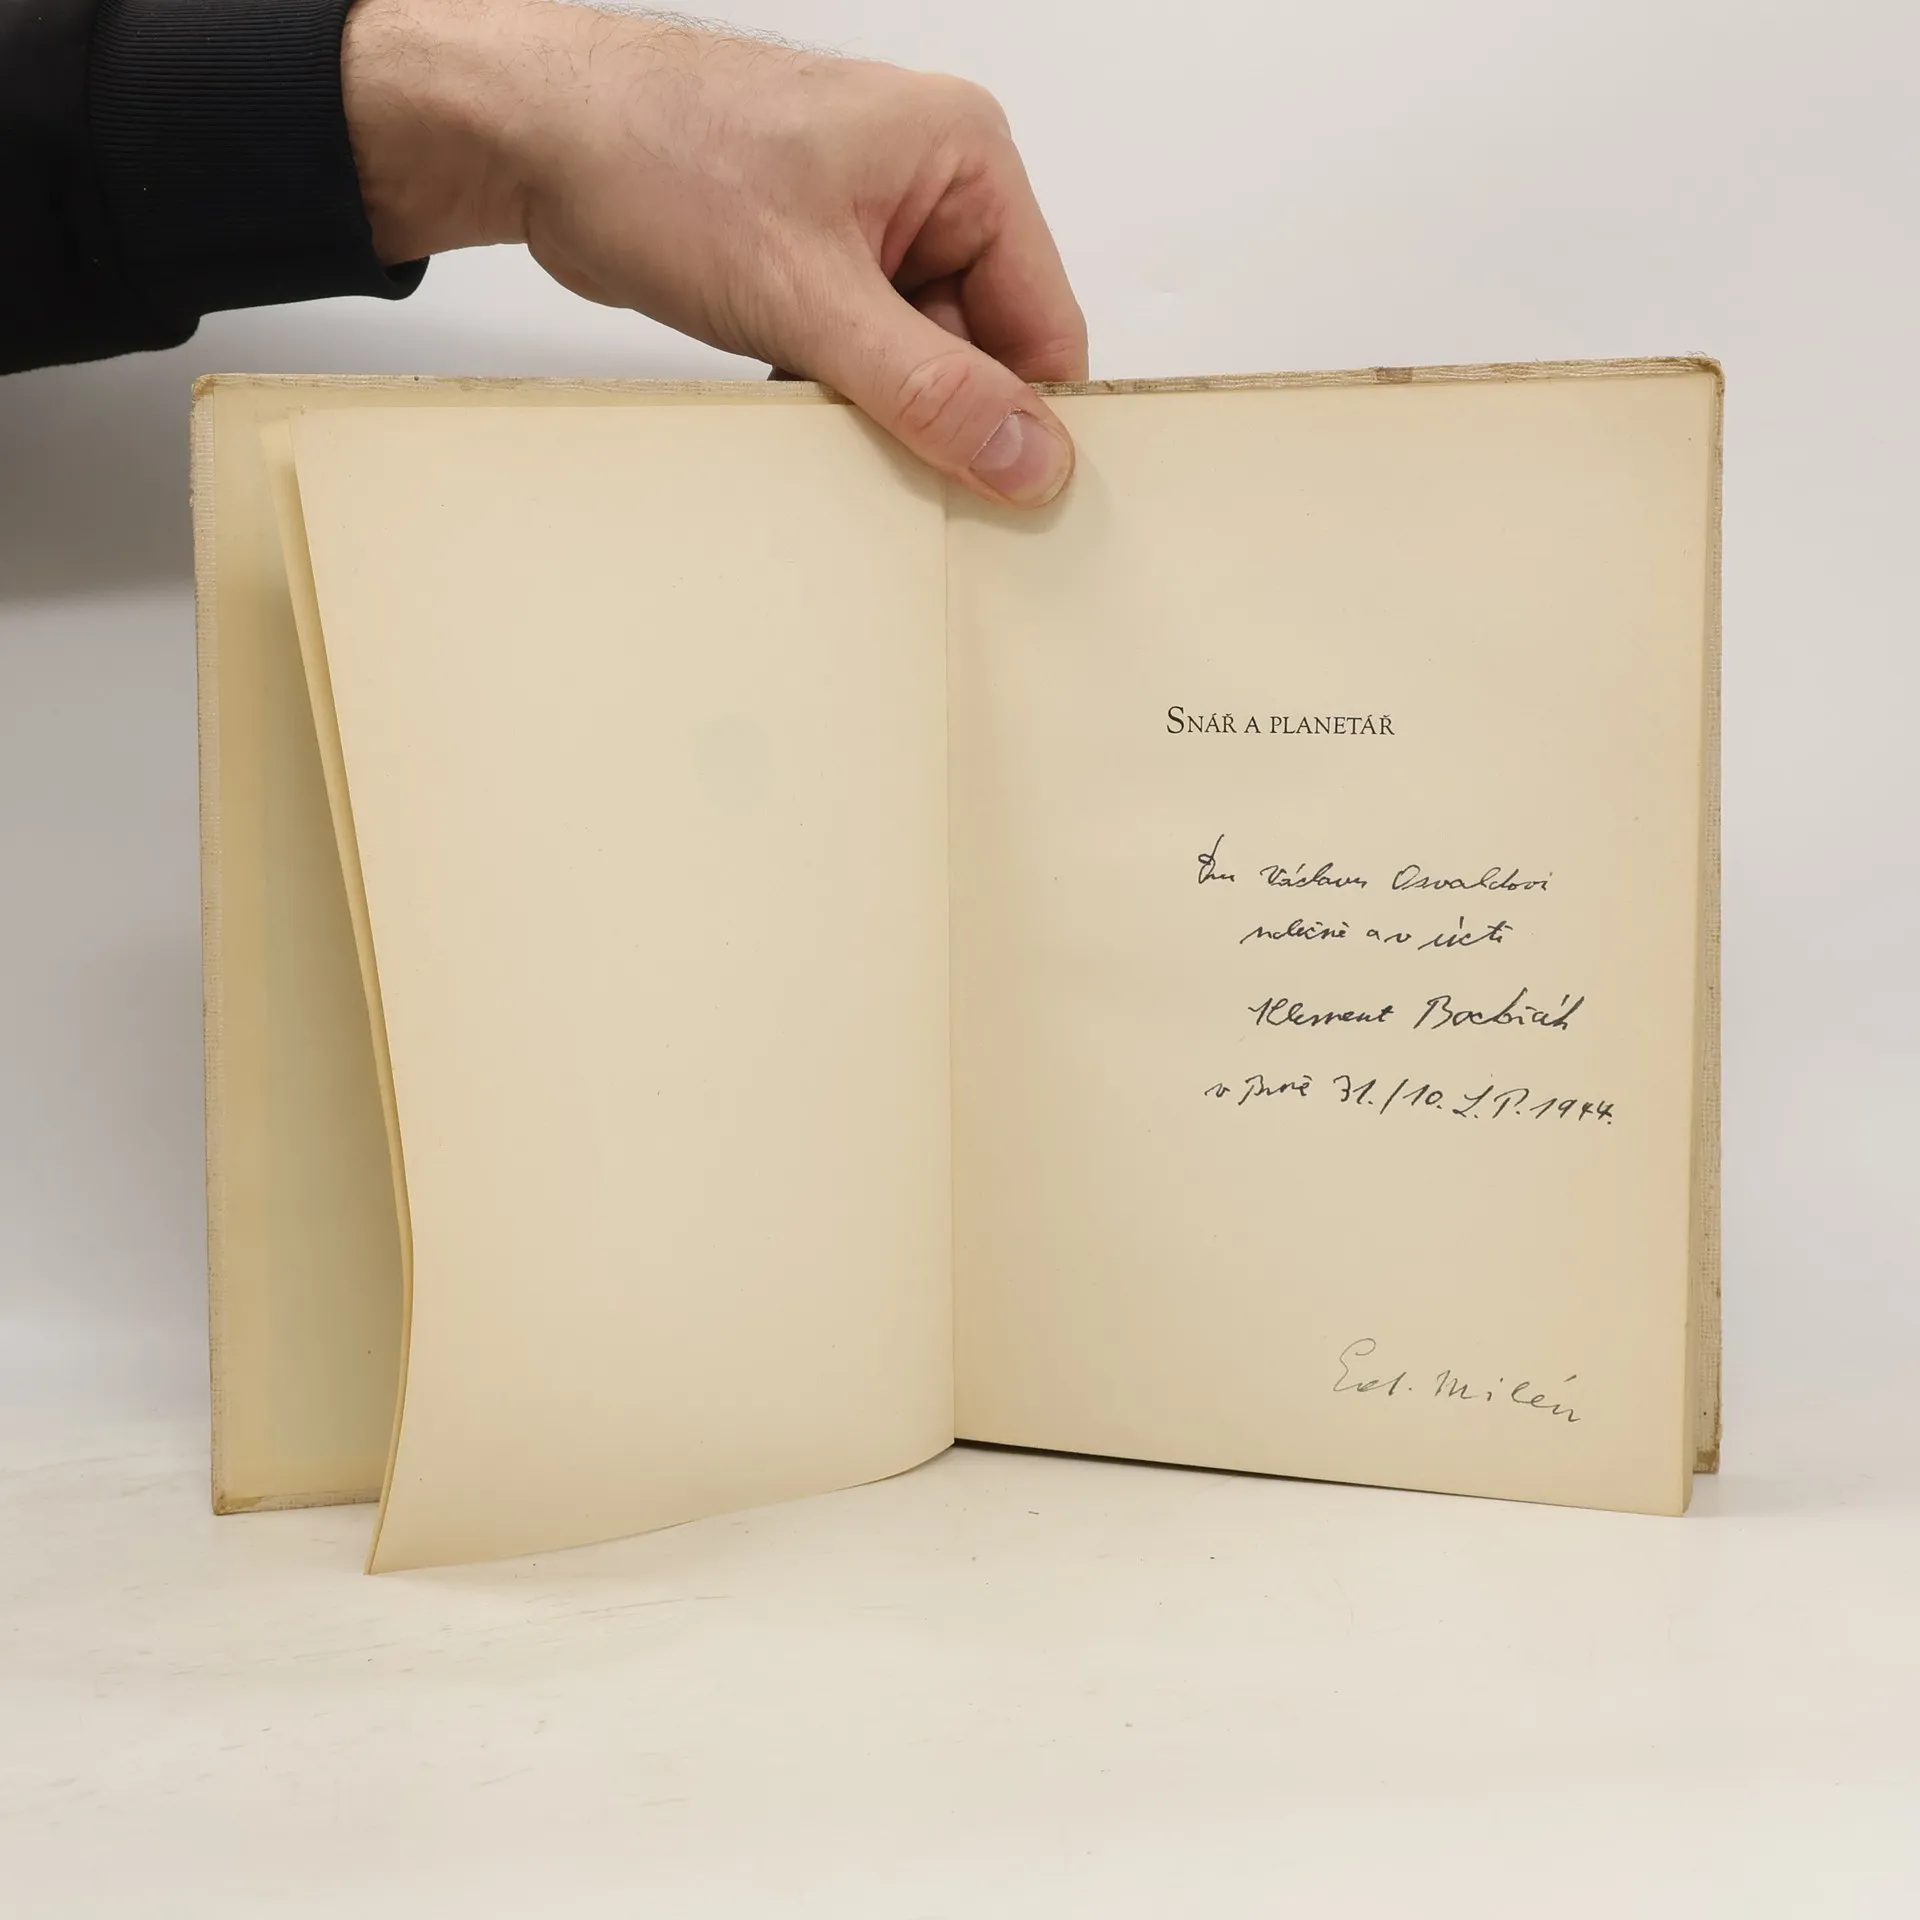 SNÁŘ A PLANETÁŘ
Václavu Osvaldovi
srdečně a v úctě
Klement Bochořák
v Brně 31./10. L.P. 1944.
Ed. Milén